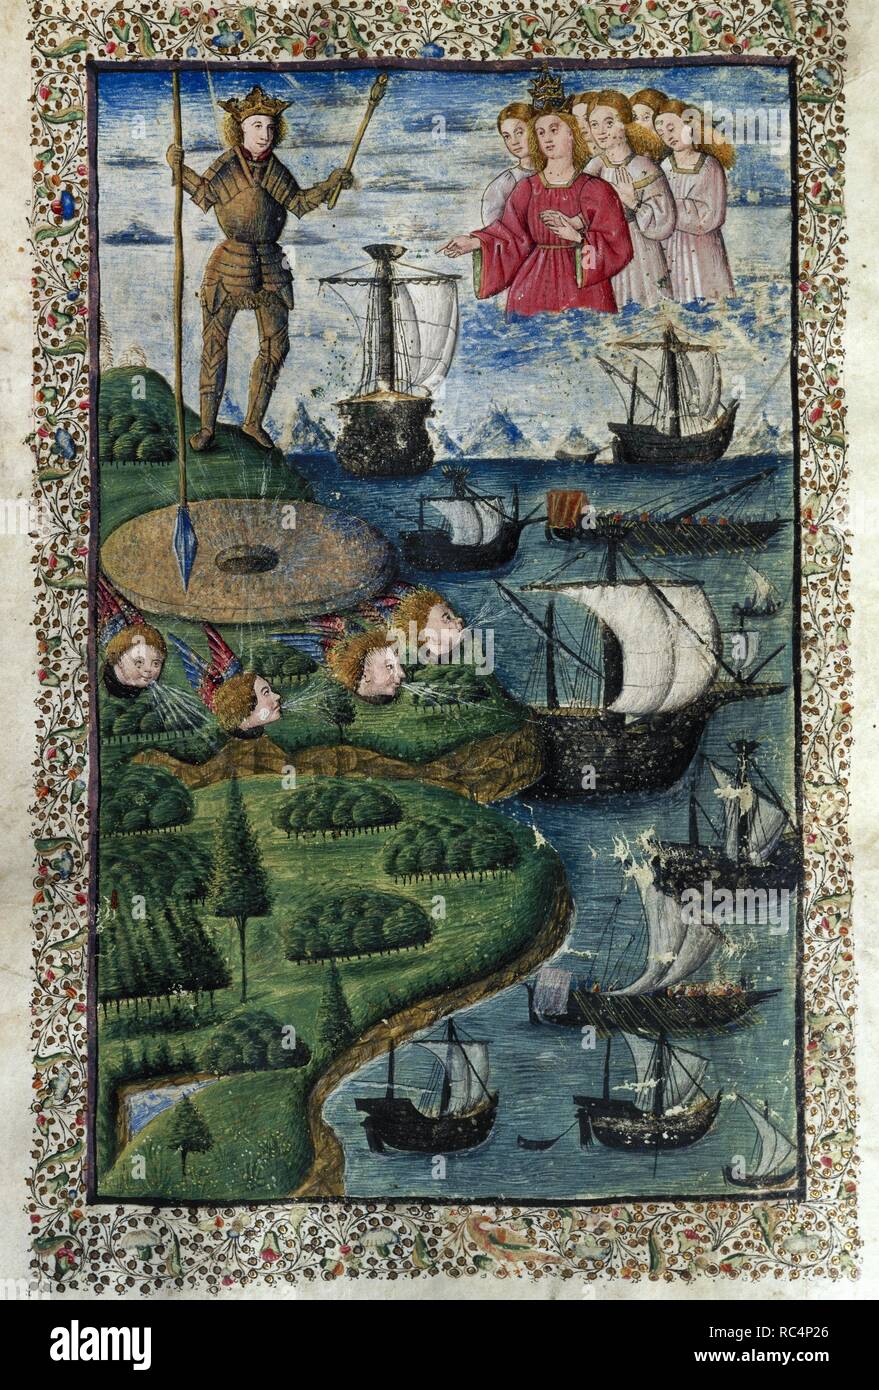 alamy
Image ID: RC4P26
www.alamy.com